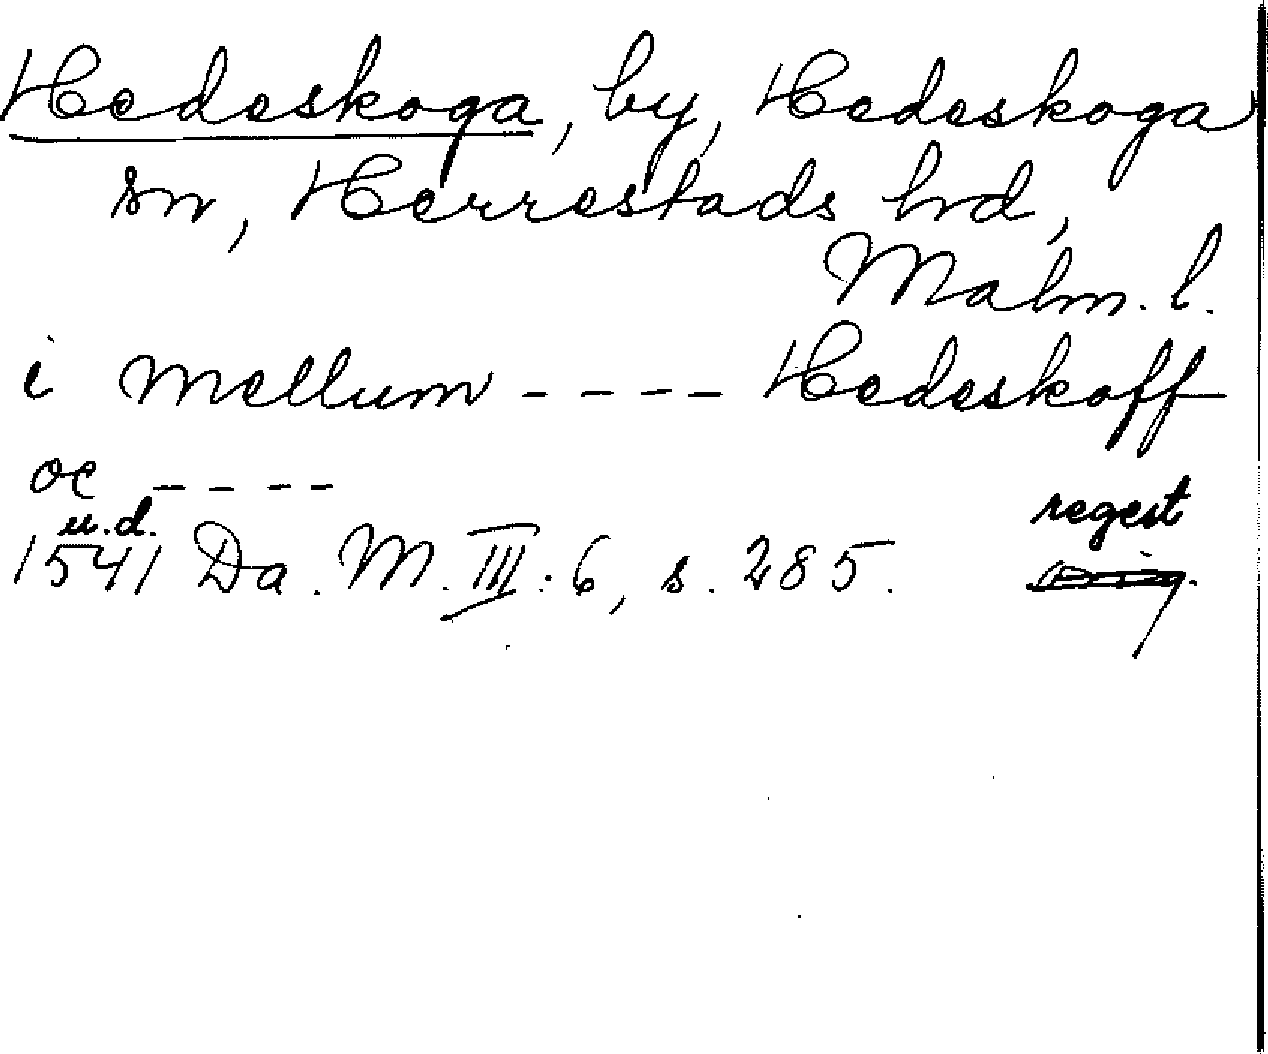 Hedeskoga, by, Hedeskoga
sn, Herrestads hrd,
Malm. l.
i mellum - - - - Hedeskoff
oc - - - -
u.d. regest
1541 Da. M. III: 6, s. 285.